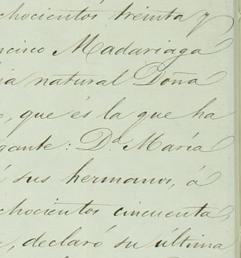 chocientos treinta y
ncisco Madariaga
ia natural Doña
o, que és la que ha
gante: D.ª María
á sus hermanos, á
chocientos cincuenta
declaró su última